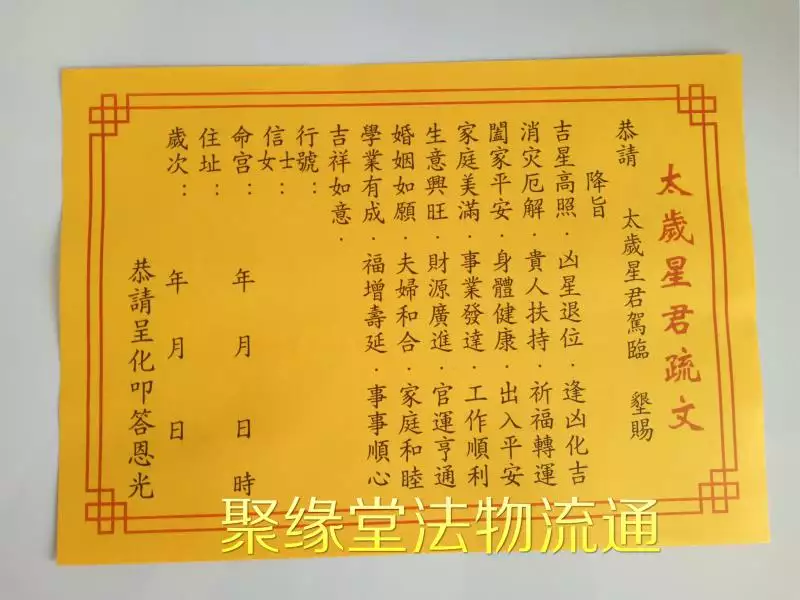 太歲星君疏文
恭請 太歲星君駕臨 墾賜
降旨
吉星高照．凶星退位．逢凶化吉
消灾厄解．貴人扶持．祈福轉運
闔家平安．身體健康．出入平安
家庭美滿．事業發達．工作順利
生意興旺．財源廣進．官運亨通
婚姻如願．夫婦和合．家庭和睦
學業有成．福增壽延．事事順心
吉祥如意．
行號：
信士女：
命宮： 年 月 日 時
住址：
歲次： 年 月 日
恭請呈化叩答恩光
聚缘堂法物流通